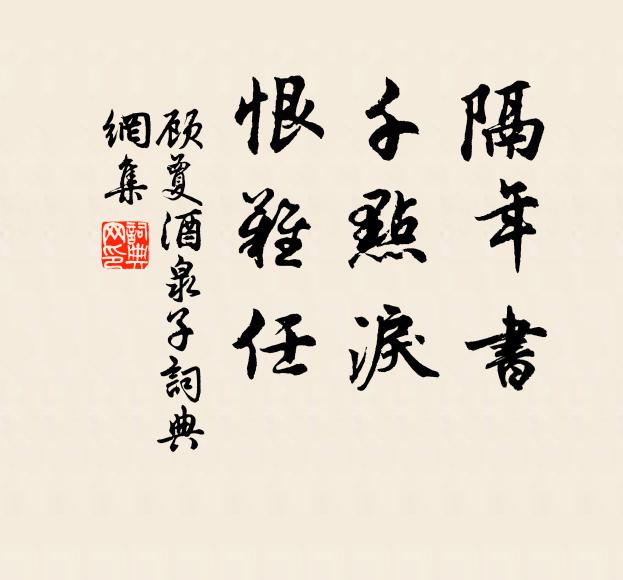 隔年書
千點淚
恨難任
顾夐酒泉子詞典
網集
詞典
网印